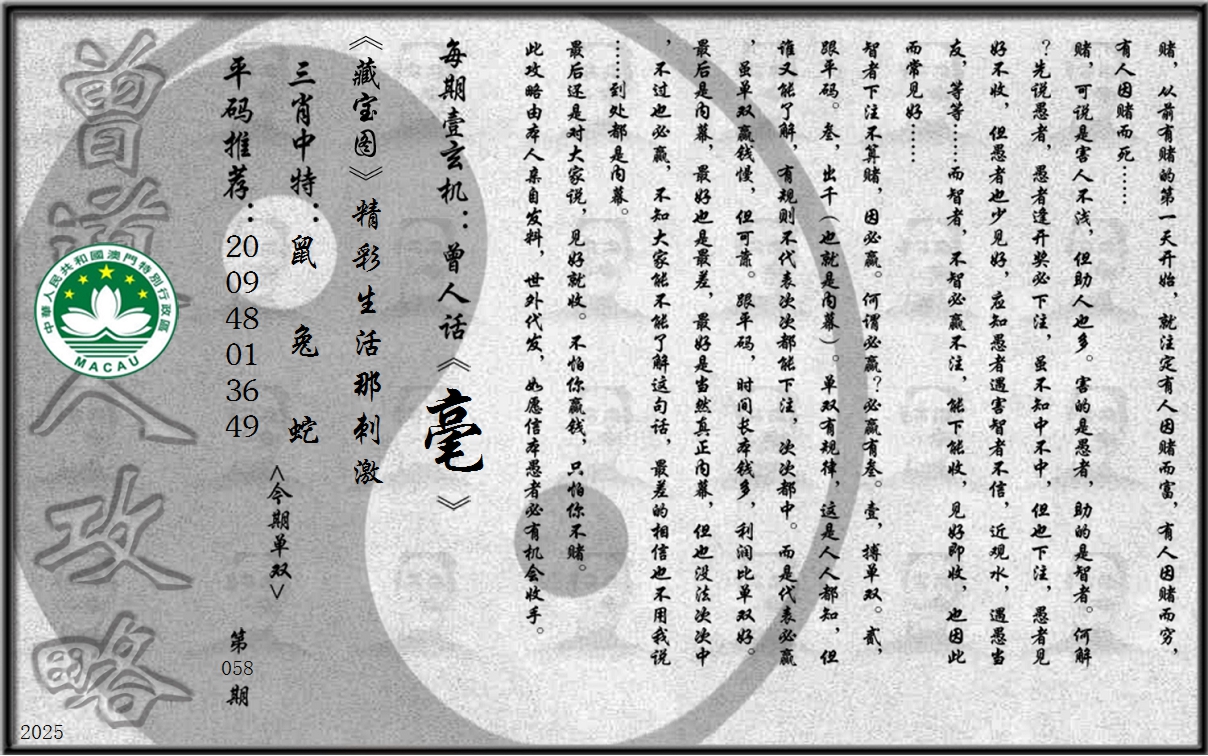 赌，从前有赌的第一天开始，就注定有人因赌而富，有人因赌而穷，
有人因赌而死……
赌，可说是害人不浅，但助人也多。害的是愚者，助的是智者。何解
？先说愚者，愚者逢开奖必下注，虽不知中不中，但也下注，愚者见
好不收，但愚者也少见好，应知愚者遇害智者不信，近观水，遇愚当
友，等等……而智者，不智必赢不注，能下能收，见好即收，也因此
而常见好……
智者下注不算赌，因必赢。何谓必赢？必赢有叁。壹，搏单双。贰，
跟平码。叁，出千（也就是内幕）。单双有规律，这是人人都知，但
谁又能了解，有规则不代表次次都能下注，次次都中。而是代表必赢
，虽单双赢钱慢，但可靠。跟平码，时间长本钱多，利润比单双好。
最后是内幕，最好也是最差，最好是当然真正内幕，但也没法次次中
，不过也必赢，不知大家能不能了解这句话，最差的相信也不用我说
……到处都是内幕。
最后还是对大家说，见好就收。不怕你赢钱，只怕你不赌。
此攻略由本人亲自发料，世外代发，如愿信本愚者必有机会收手。
每期壹玄机：曾人话《毫》
《藏宝图》精彩生活那刺激
三肖中特：鼠 兔 蛇
<今期单双>
平码推荐：20 09 48 01 36 49
第058期
曾道人攻略
中華人民共和國澳門特別行政區
MACAU
2025